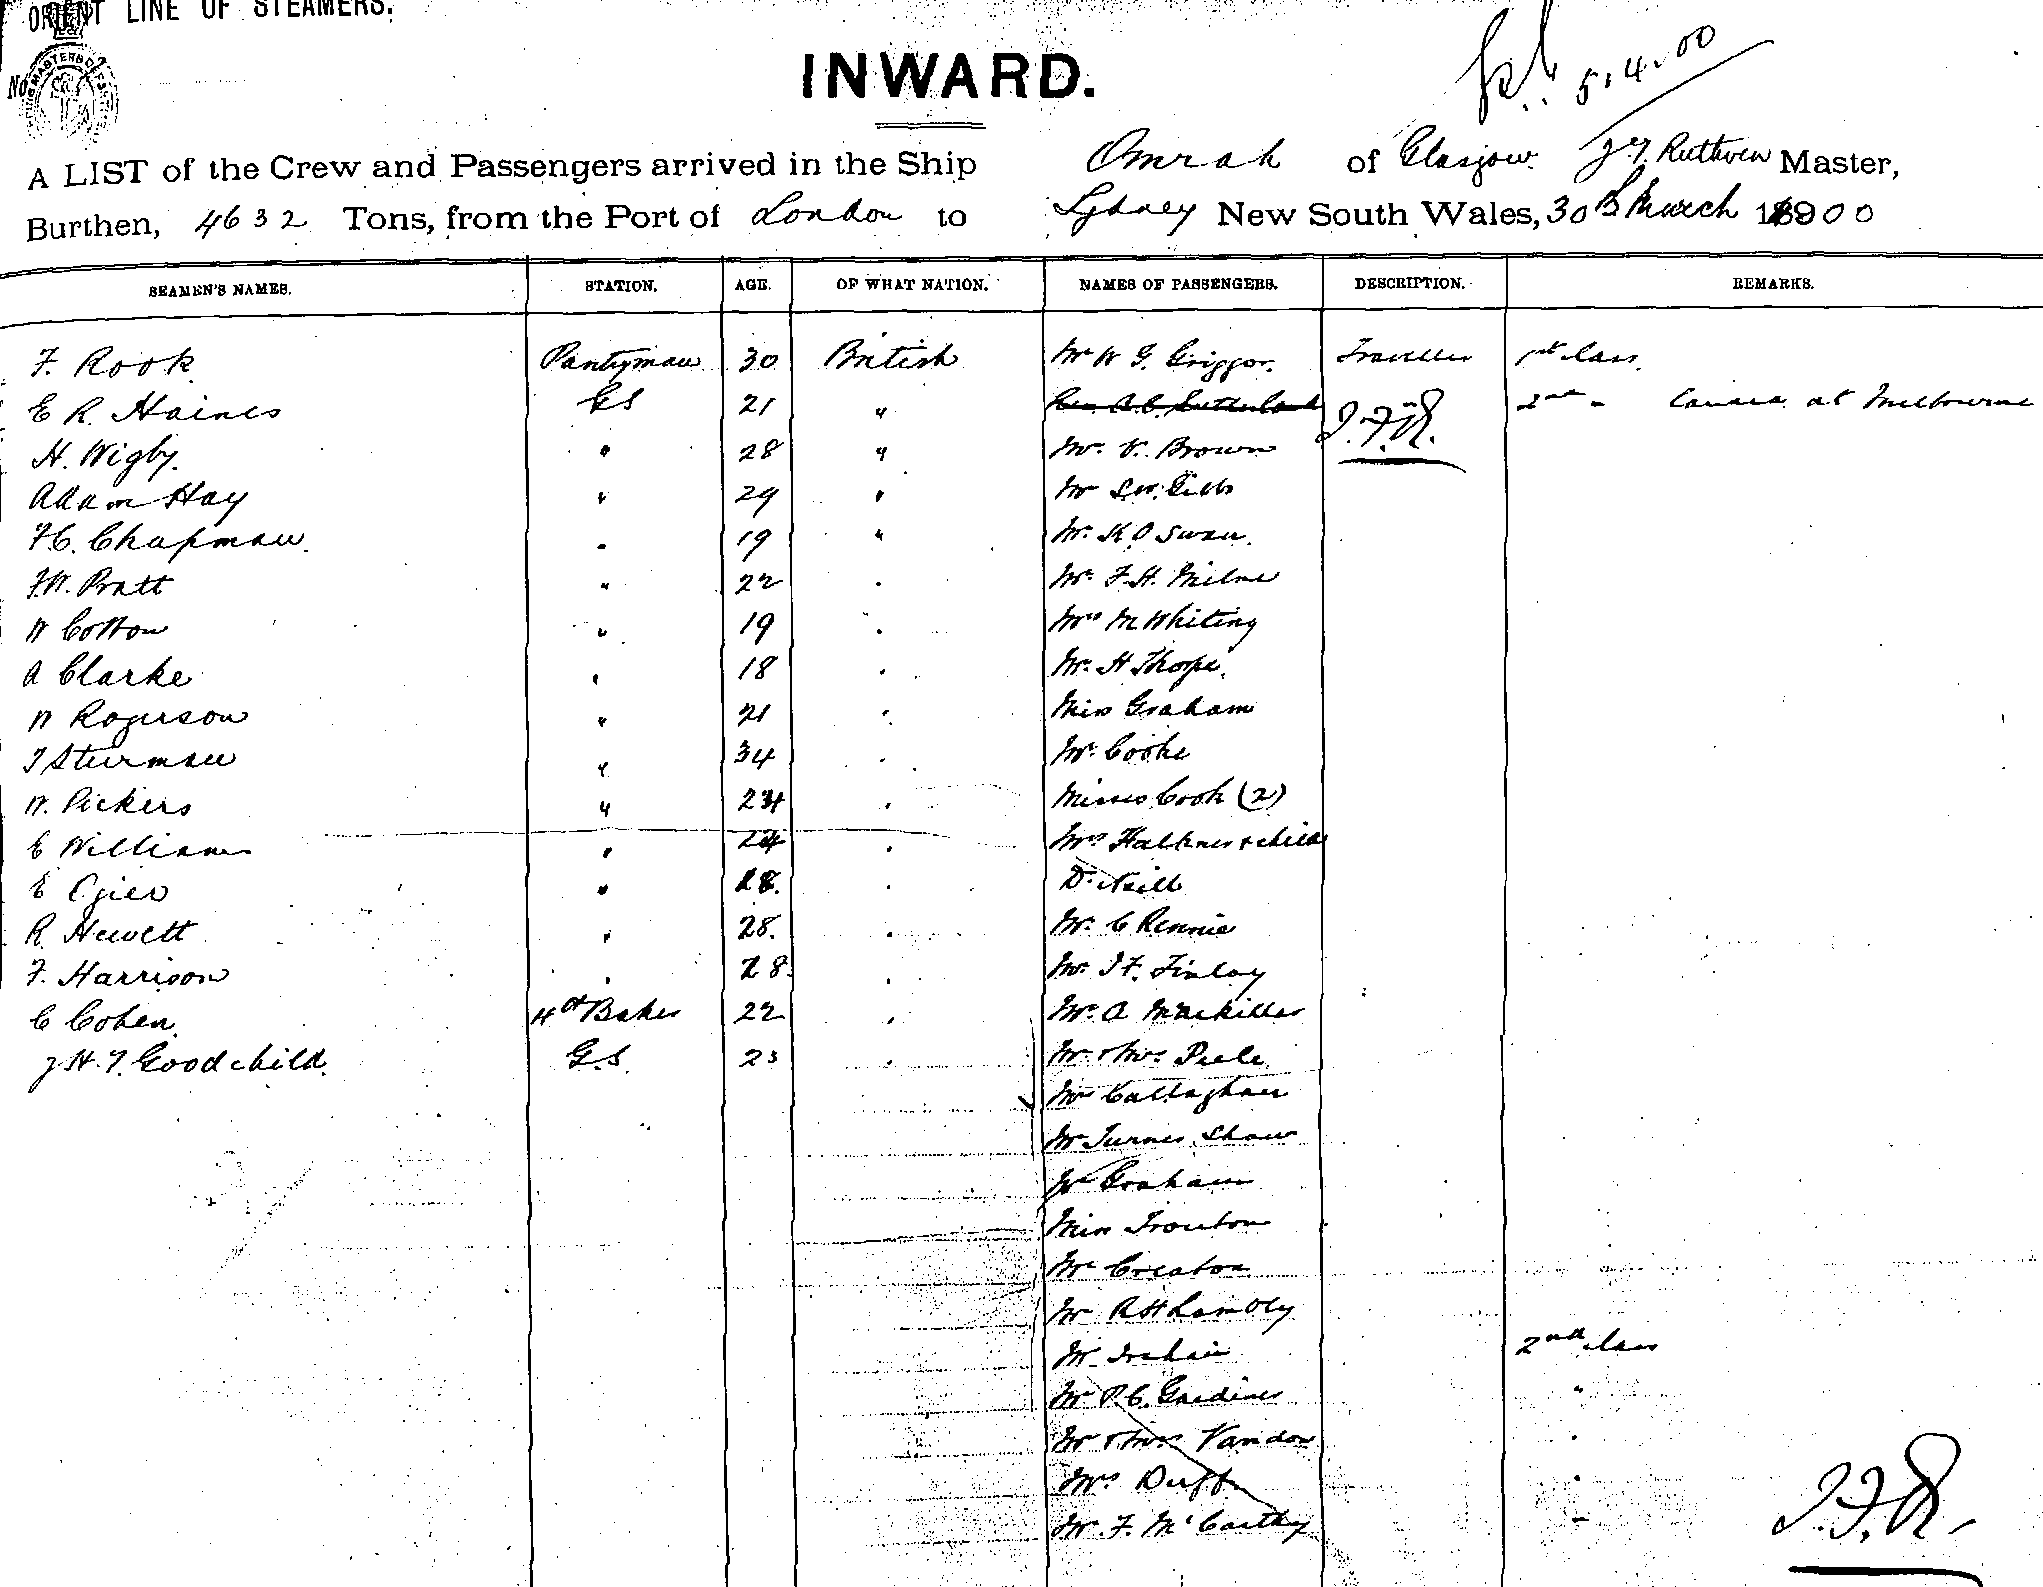 ORIENT LINE OF STEAMERS.
No.
INWARD.
5.4.00
A LIST of the Crew and Passengers arrived in the Ship Omrah of Glasgow. Ruthven Master,
Burthen, 4632 Tons, from the Port of London to Sydney New South Wales, 30th March 1900
SEAMEN'S NAMES. STATION. AGE. OF WHAT NATION. NAMES OF PASSENGERS. DESCRIPTION. REMARKS.
F. Rook Pantryman 30 British Mr W G. Griggor. Traveller 1st Class.
E R. Haines GS 21 " 2nd " at Melbourne
H. Wigby. " 28 " Mr. V. Brown J.F.R.
Adam Hay " 29 " Mr S.W. Gibbs
F C. Chapman. " 19 " Mr. K O Swan.
F.W. Pratt " 22 " Mr. F. H. Milne
W Cotton " 19 " Mrs M Whiting
A Clarke " 18 " Mr. H Thorpe.
W Rogerson " 21 " Miss Graham
T Sturman " 34 " Mr. Cooke
W. Pickers " 24 " Misses Cook (2)
E Williams " 24 " Mrs Falkner & child
E Ogier " 28. " Dr. Neill
R. Hewett " 28. " Mr. C Rennie
F. Harrison " 28. " Mr. J F. Finlay
C Cohen. 4th Baker 22 " Mr. A Mackillar
J H. T. Goodchild. G.S. 23 " Mr. & Mrs Peele
Mr Callaghan
Mr Turner Shaw
Mr Graham
Miss Trouton
Mr Creaton
Mr R H Lambly
Mr 2nd Class
Mr P. C. Gardiner "
Mr & Mrs Vandon "
Mrs Duff "
Mr. F. McCarthy "
J.F.R.